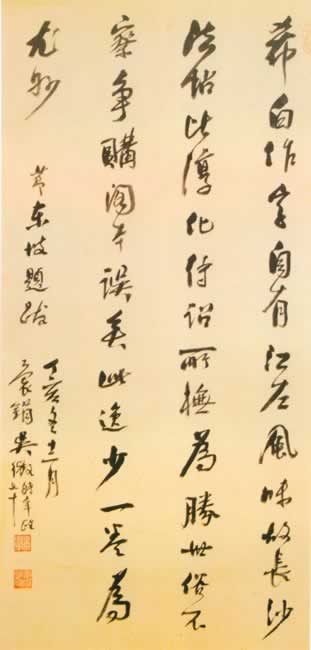 希白作字自有江左風味故長沙
法帖比淳化待詔所橅為勝世俗不
察爭購閣本誤矣此逸少一卷為
尤妙
東坡題跋
丁亥冬十一月
袌鋗吳徵時年七十